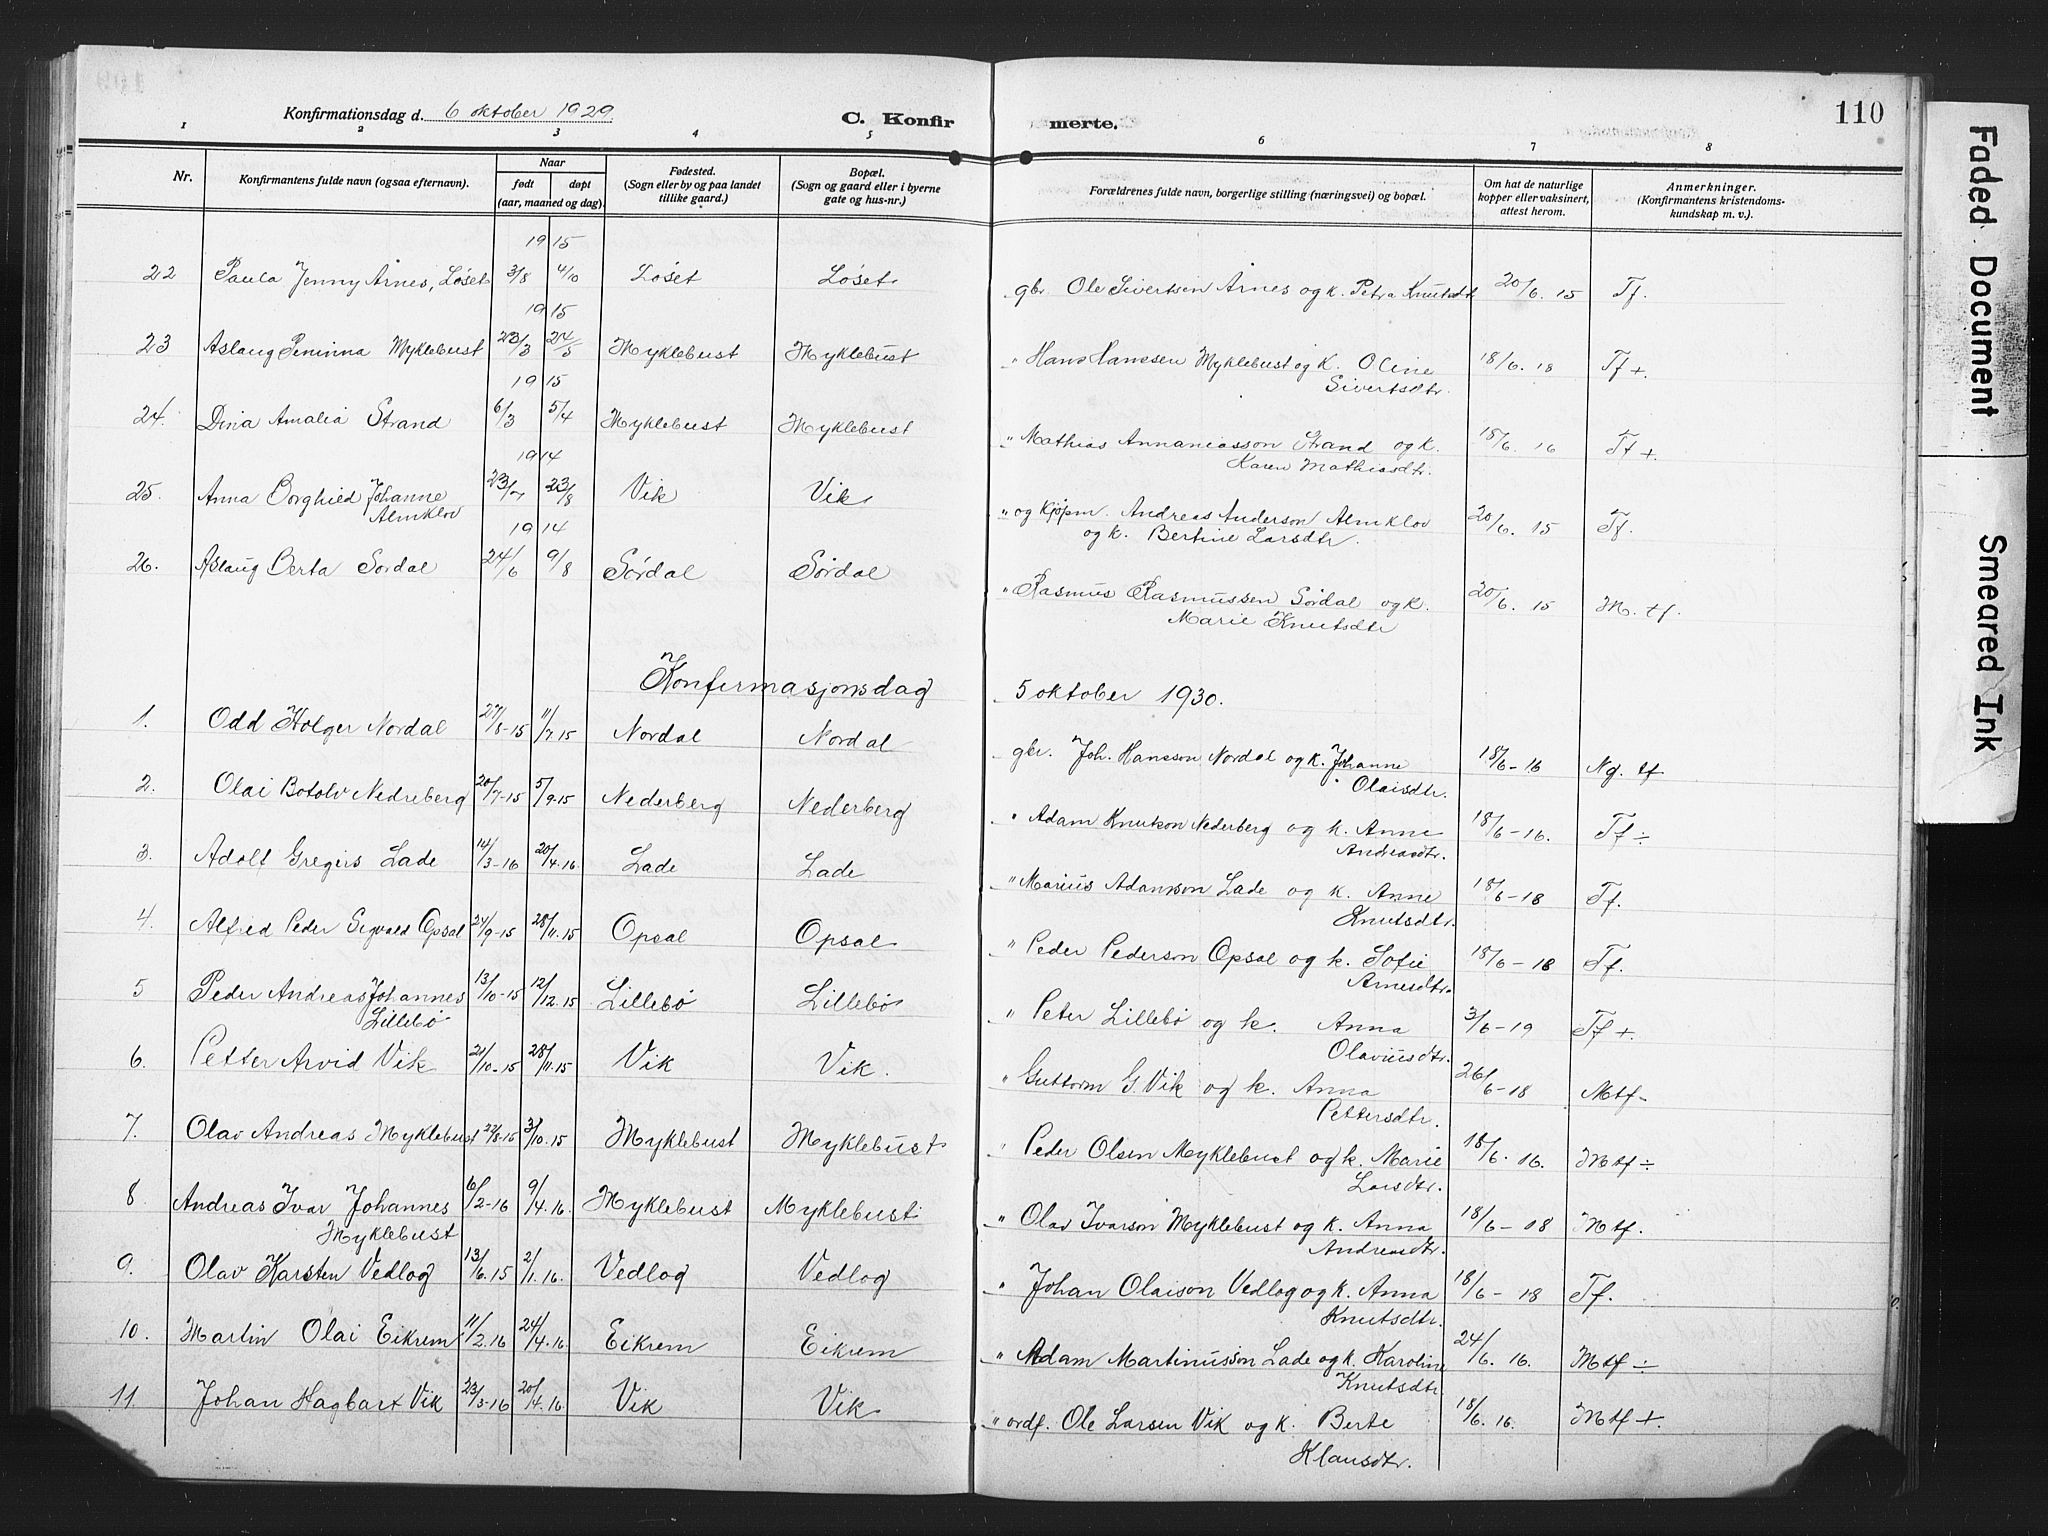 Konfirmationsdag d. 6 oktober 1929.
C. Konfirmerte.
110
1 2 3 4 5 6 7 8
Nr.
Konfirmantens fulde navn (ogsaa efternavn).
Naar
født døpt
(aar, maaned og dag).
Fødested.
(Sogn eller by og paa landet
tillike gaard.)
Bopæl.
(Sogn og gaard eller i byerne
gate og hus-nr.)
Forældrenes fulde navn, borgerlige stilling (næringsvei) og bopæl.
Om hat de naturlige
kopper eller vaksinert,
attest herom.
Anmerkninger.
(Konfirmantens kristendoms-
kundskap m. v.)
1915
22 Paula Jenny Årnes, Løset 3/8 4/10 Løset Løset gbr Ole Sivertsen Årnes og k. Petra Knutsdt 20/6. 15 Tf.
1915
23 Aslaug Peninna Myklebust 23/3 24/5 Myklebust Myklebust " Hans Hanssen Myklebust og k. Oline 18/6. 18 Tf +.
Sivertsdtr.
1915
24. Dina Amalia Strand 6/3 5/4 Myklebust Myklebust " Mathias Annaniasson Strand og k. 18/6. 16 Tf +.
Karen Mathiasdtr.
1914
25. Anna Borghild Johanne 23/7 23/8 Vik Vik " og kjøpm. Andreas Anderson Almklov 20/6. 15 Tf.
Almklov
og k. Bertine Larsdtr.
1914
26. Aslaug Berta Sørdal 24/6 9/8 Sørdal Sørdal " Rasmus Rasmussen Sørdal og k. 20/6. 15 M. tf.
Marie Knutsdtr
Konfirmasjonsdag 5 oktober 1930.
1. Odd Holger Nordal 27/5-15 11/7.15 Nordal Nordal gbr. Joh. Hansson Nordal og k. Johanne 18/6-16 Ng. tf
Olaisdtr.
2. Olai Botolv Nedreberg 20/7-15 5/9-15 Nederberg Nederberg " Adam Knutson Nederberg og k. Anne 18/6-16. Tf ÷
Andreasdtr.
3. Adolf Gregers Lade 14/3-16 20/4.16 Lade Lade " Marius Adamson Lade og k. Anne 18/6-18 Tf.
Knutsdtr.
4. Alfred Peder Sigvald Opsal 24/9-15 28/11.15 Opsal Opsal " Peder Pederson Opsal og k. Sofie 18/6-18 Tf.
Arnesdtr.
5 Peder Andreas Johannes 13/10-15 12/12.15 Lillebø Lillebø " Peter Lillebø og k. Anna 3/6-19 Tf +.
Lillebø
Olaviusdtr.
6. Petter Arvid Vik 21/10-15 28/11.15 Vik Vik. " Guttorm G. Vik og k. Anna 26/6-18 Mtf-
Pettersdtr.
7. Olav Andreas Myklebust 22/8-15 3/10.15 Myklebust Myklebust " Peder Olsen Myklebust og k. Marie 18/6. 16. Mtf ÷
Larsdtr.
8 Andreas Ivar Johannes 6/2-16 9/4.16. Myklebust Myklebust " Olav Ivarson Myklebust og k. Anna 18/6-18 Mtf.
Myklebust
Andreasdtr.
9. Olav Karsten Vedlog 13/6.15 2/1.16. Vedlog Vedlog " Johan Olaison Vedlog og k. Anna 18/6-18 Tf.
Knutsdtr.
10. Martin Olai Eikrem 11/2.16 24/4.16. Eikrem Eikrem " Adam Martinusson Lade og k. Karoline 24/6. 16. Mtf ÷
Knutsdtr
11. Johan Hagbart Vik 23/3-16 20/4.16. Vik Vik " ordf. Ole Larsen Vik og k. Berte 18/6. 16. Mtf +.
Klausdtr.
Faded Document
Smeared Ink